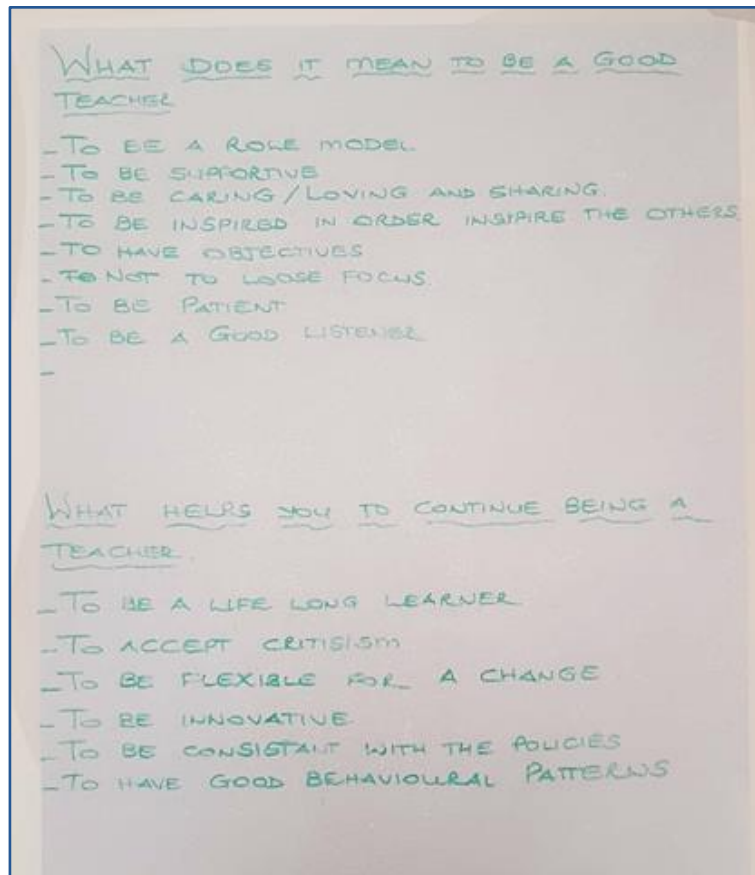 WHAT DOES IT MEAN TO BE A GOOD
TEACHER
- TO BE A ROLE MODEL.
- TO BE SUPPORTIVE
- TO BE CARING / LOVING AND SHARING.
- TO BE INSPIRED IN ORDER INSPIRE THE OTHERS
- TO HAVE OBJECTIVES
- TO NOT TO LOOSE FOCUS.
- TO BE PATIENT
- TO BE A GOOD LISTENER
-
WHAT HELPS YOU TO CONTINUE BEING A
TEACHER.
- TO BE A LIFE LONG LEARNER
- TO ACCEPT CRITISISM
- TO BE FLEXIBLE FOR A CHANGE
- TO BE INNOVATIVE
- TO BE CONSISTANT WITH THE POLICIES
- TO HAVE GOOD BEHAVIOURAL PATTERNS